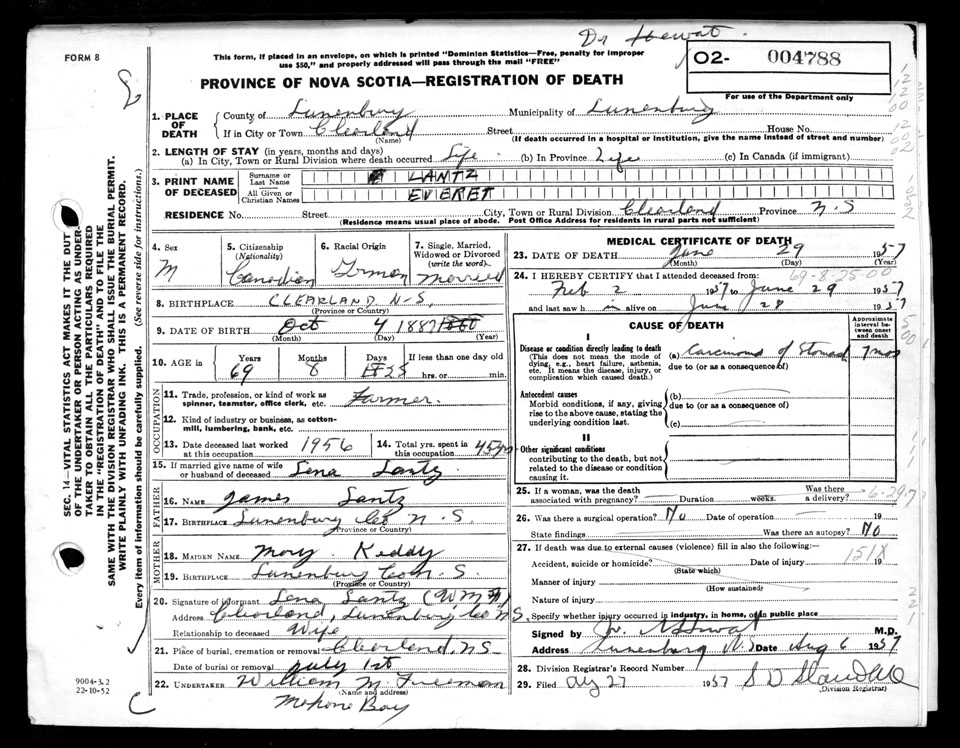 Dr Hewat
FORM 8
This form, if placed in an envelope, on which is printed "Dominion Statistics—Free, penalty for improper
use $50," and properly addressed will pass through the mail "FREE"
O2- 004788
For use of the Department only
PROVINCE OF NOVA SCOTIA—REGISTRATION OF DEATH
SEC. 14—VITAL STATISTICS ACT MAKES IT THE DUTY
OF THE UNDERTAKER OR PERSON ACTING AS UNDER-
TAKER TO OBTAIN ALL THE PARTICULARS REQUIRED
IN THE "REGISTRATION OF DEATH" AND TO FILE THE
SAME WITH THE DIVISION REGISTRAR WHO SHALL ISSUE THE BURIAL PERMIT.
WRITE PLAINLY WITH UNFADING INK. THIS IS A PERMANENT RECORD.
Every item of information should be carefully supplied. (See reverse side for instructions.)
1. PLACE OF DEATH County of Lunenburg Municipality of Lunenburg
If in City or Town Clearland Street House No.
(Name) (If death occurred in a hospital or institution, give the name instead of street and number)
2. LENGTH OF STAY (in years, months and days)
(a) In City, Town or Rural Division where death occurred Life (b) In Province Life (c) In Canada (if immigrant)
3. PRINT NAME OF DECEASED Surname or Last Name LANTZ
All Given or Christian Names EVERET
RESIDENCE No. Street City, Town or Rural Division Clearland Province N.S
(Residence means usual place of abode. Post Office Address for residents in rural parts not sufficient)
4. Sex M
5. Citizenship (Nationality) Canadian
6. Racial Origin German
7. Single, Married, Widowed or Divorced (write the word) Married
8. BIRTHPLACE CLEARLAND N-S.
(Province or Country)
9. DATE OF BIRTH Oct 4 1887
(Month) (Day) (Year)
10. AGE in Years Months Days If less than one day old
69 8 25 hrs. or min.
OCCUPATION
11. Trade, profession, or kind of work as spinner, teamster, office clerk, etc. Farmer.
12. Kind of industry or business, as cotton-mill, lumbering, bank, etc.
13. Date deceased last worked at this occupation 1956
14. Total yrs. spent in this occupation 45 yrs
15. If married give name of wife or husband of deceased Lena Lantz
FATHER
16. NAME James Lantz
17. BIRTHPLACE Lunenburg Co N.S.
(Province or Country)
MOTHER
18. MAIDEN NAME Mary Keddy
19. BIRTHPLACE Lunenburg Co N.S.
(Province or Country)
20. Signature of informant Lena Lantz (W.M.F)
Address Clearland, Lunenburg Co N.S.
Relationship to deceased Wife
21. Place of burial, cremation or removal Clearland, N.S.
Date of burial or removal July 1st
22. UNDERTAKER William M. Freeman
(Name and address)
Mahone Bay
9004-3.2
22-10-52
MEDICAL CERTIFICATE OF DEATH
23. DATE OF DEATH June 29 1957
(Month) (Day)
69-8-25-00
24. I HEREBY CERTIFY that I attended deceased from:
Feb 2 1957 to June 29 1957
and last saw h im alive on June 28 1957
CAUSE OF DEATH
Approximate interval between onset and death
Disease or condition directly leading to death
(This does not mean the mode of dying, e.g., heart failure, asthenia, etc. It means the disease, injury, or complication which caused death.)
(a) Carcinoma of Stomach 7 mos
due to (or as a consequence of)
Antecedent causes
Morbid conditions, if any, giving rise to the above cause, stating the underlying condition last.
(b)
due to (or as a consequence of)
(c)
II
Other significant conditions
contributing to the death, but not related to the disease or condition causing it.
25. If a woman, was the death associated with pregnancy? Duration weeks. Was there a delivery?
6-29-7
26. Was there a surgical operation? No Date of operation 19
State findings Was there an autopsy? No
27. If death was due to external causes (violence) fill in also the following:—
151X
Accident, suicide or homicide? Date of injury 19
(State which)
Manner of injury
(How sustained)
Nature of injury
Specify whether injury occurred in industry, in home, or in public place
Signed by M.D.
Address Lunenburg N.S Date Aug 6 1957
28. Division Registrar's Record Number
29. Filed Aug 27 1957
(Division Registrar)